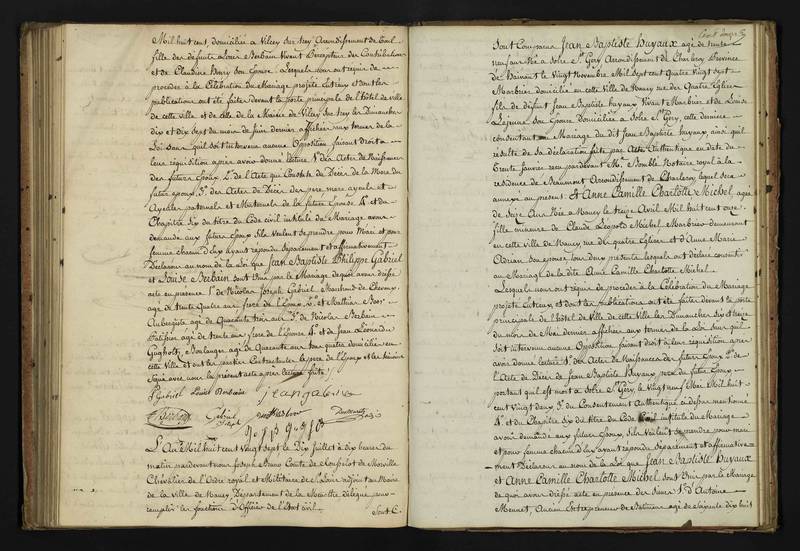 Mil huit cent, domiciliée à Vilcey sur trey Arrondissement de Toul
fille des défunts Louis Berbain Vivant Percepteur des Contributions
et de Claudine Henry son Epouse. Lesquels nous ont requis de
procéder à la Célébration du Mariage projeté Entreux et dont les
publications ont été faites devant la porte principale de l'hôtel de ville
de cette ville et de celle de la Mairie de Vilcey sur trey les Dimanches
dix et dix sept du mois de juin dernier affichées aux termes de la
Loi sans qu'il soit intervenu aucune Opposition faisant droit à
leur réquisition après avoir donné lecture 1.° des Actes de Naissances
des futurs Epoux 2.° de l'Acte qui Constate le Décès de la Mère du
futur époux 3.° des Actes de Décès des père mère ayeuls et
Ayeules paternels et Maternels de la future Epouse 4.° et du
Chapitre Six du titre du Code civil intitulé du Mariage avons
demandé aux futurs Epoux s'ils veulent se prendre pour Mari et pour
femme chacun d'eux ayant répondu Séparément et affirmativement
Déclarons au nom de la Loi que Jean Baptiste Philippe Gabriel
et Louise Berbain sont Unis par le Mariage de quoi avons dressé
acte en présence 1.° de Nicolas Joseph Gabriel Marchand de Chevaux
agé de trente quatre ans frère de l'Epoux 2.° et Mathias
Aubergiste agé de Quarante trois ans 3.° de Nicolas Berbain
Patissier agé de trente ans frère de l'Epouse 4.° et de Jean Léonard
Boulanger agé de Quarante ans tous quatre domiciliés en
cette Ville et ont les parties Contractantes le père de l'Epoux et les témoins
Signé avec nous le présent acte après lecture faite
Gabriel Louise Berbain Jean gabriel
Gabriel
L'An Mil huit cent Vingt sept le Dix Juillet à dix heures du
matin pardevant nous Joseph Comte de
Chevalier de l'Ordre royal et Militaire de St. Louis adjoint au Maire
de la Ville de Nancy, Département de la Meurthe délégué pour
remplir les fonctions d'Officier de l'Etat civil.
Sont C.
Sont Comparus Jean Baptiste Buyaux agé de trente
neuf ans Né à Solre St. Géry Arrondissement de Charleroy Province
de Hainaut le Vingt Novembre Mil Sept cent Quatre Vingt sept
Marbrier domicilié en cette Ville de Nancy rue des Quatre Eglises
fils de défunt Jean Baptiste buyaux Vivant Marbrier et de Louise
Lejeune son Epouse Domiciliée à Solre St. Géry, cette dernière
consentant au Mariage du dit Jean Baptiste buyaux ainsi qu'il
résulte de sa déclaration faite par Acte Authentique en date du
trente janvier reçu pardevant M.e Notaire royal à la
résidence de Beaumont Arrondissement de Charleroy lequel sera
annexé au présent. Et Anne Camille Charlotte Michel, agée
de Seize Ans Née à Nancy le treize Avril Mil huit cent onze
fille mineure de Claude Léopold Michel Marbrier demeurant
en cette Ville de Nancy rue des quatre Eglises et d'Anne Marie
Adrian son épouse tous deux présents lesquels ont déclaré consentir
au Mariage de la dite Anne Camille Charlotte Michel.
Lesquels nous ont requis de procéder à la Célébration du Mariage
projeté Entreux et dont les Publications ont été faites devant la porte
principale de l'hôtel de Ville de cette Ville les Dimanches six et treize
du mois de Mai dernier affichées aux termes de la Loi sans qu'il
soit intervenu aucune Opposition faisant droit à leur réquisition après
avoir donné lecture 1.° des Actes de Naissances des futurs Epoux 2.° de
l'Acte de Décès de Jean Baptiste Buyaux père du futur Epoux
portant qu'il est mort à Solre St. Géry, le vingt neuf Mai Mil huit
cent Vingt deux 3.° du Consentement Authentique ci dessus mentionné
4.° et du Chapitre Six du titre du Code Civil intitulé du Mariage
avons demandé aux futurs Epoux s'ils Veulent se prendre pour mari
et pour femme chacun d'Eux ayant répondu Séparément et affirmative-
ment Déclarons au nom de la Loi que Jean Baptiste Buyaux
et Anne Camille Charlotte Michel sont Unis par le Mariage
de quoi avons dressé acte en présence des Sieurs 1.° d'Antoine
Mennet, Ancien Entrepreneur de Batimens agé de Soixante dix huit